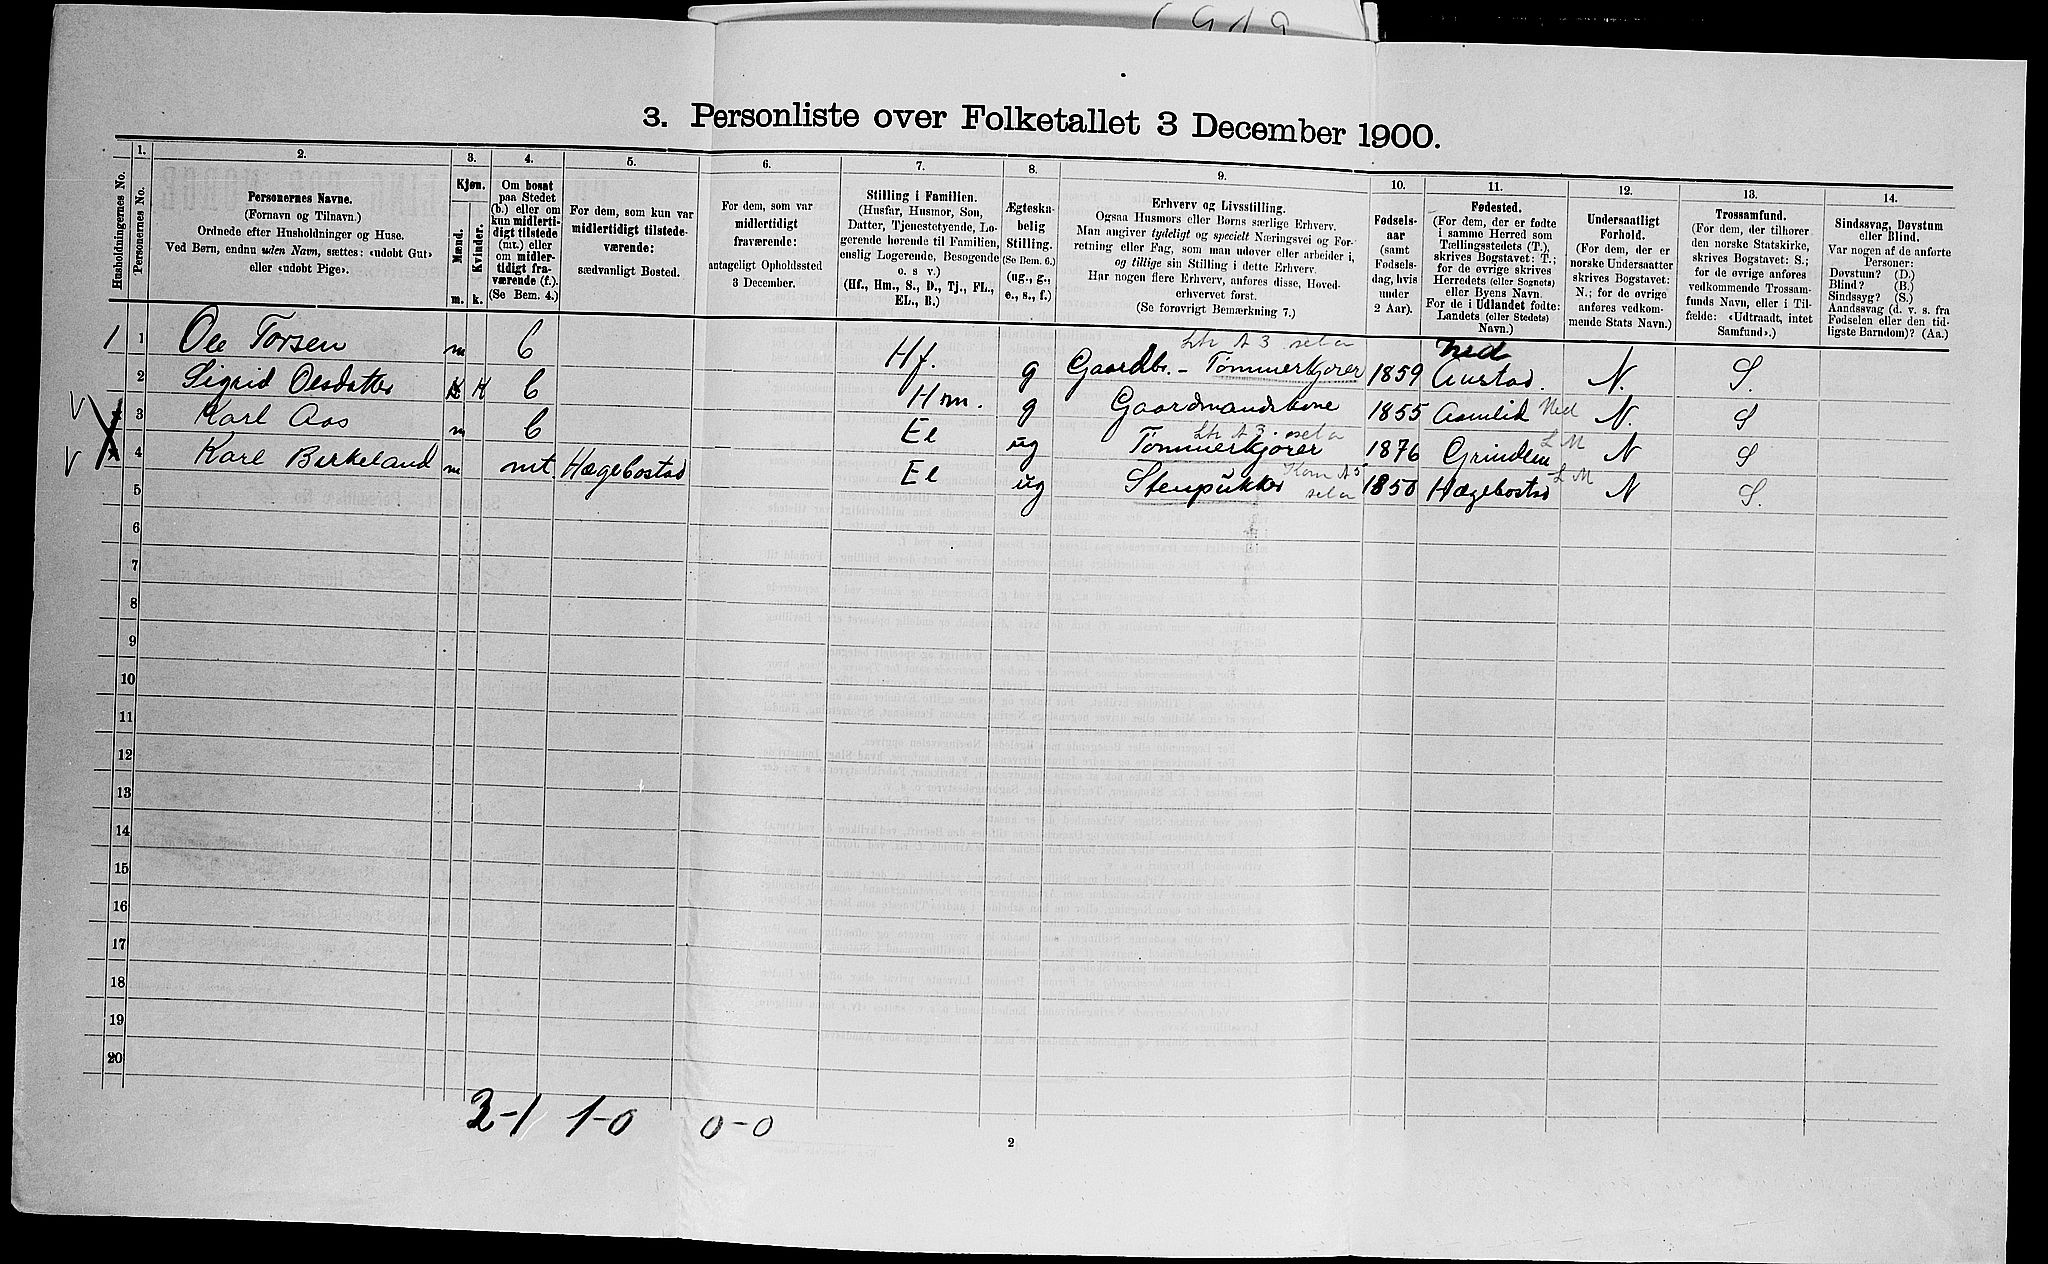 1919
3. Personliste over Folketallet 3 December 1900.
Husholdningernes No.
1.
Personernes No.
2.
Personernes Navne.
(Fornavn og Tilnavn.)
Ordnede efter Husholdninger og Huse.
Ved Børn, endnu uden Navn, sættes: «udøbt Gut»
eller «udøbt Pige».
3.
Kjøn.
Mænd.
Kvinder.
m. k.
4.
Om bosat
paa Stedet
(b.) eller om
kun midlerti-
digt tilstede
(mt.) eller
om midler-
tidigt fra-
værende (f.).
(Se Bem. 4.)
5.
For dem, som kun var
midlertidigt tilstede-
værende:
sædvanligt Bosted.
6.
For dem, som var
midlertidigt
fraværende:
antageligt Opholdssted
3 December.
7.
Stilling i Familien.
(Husfar, Husmor, Søn,
Datter, Tjenestetyende, Lo-
gerende hørende til Familien,
enslig Logerende, Besøgende
o. s v.)
(Hf., Hm., S., D., Tj., FL.,
EL., B.)
8.
Ægteska-
belig
Stilling.
(Se Bem. 6.)
(ug., g.,
e., s., f.)
9.
Erhverv og Livsstilling.
Ogsaa Husmors eller Børns særlige Erhverv.
Man angiver tydeligt og specielt Næringsvei og For-
retning eller Fag, som man udøver eller arbeider i,
og tillige sin Stilling i dette Erhverv.
Har nogen flere Erhverv, anføres disse, Hoved-
erhvervet først.
(Se forøvrigt Bemærkning 7.)
10.
Fødsels-
aar
(samt
Fødsels-
dag, hvis
under
2 Aar).
11.
Fødested.
(For dem, der er fødte
i samme Herred som
Tællingsstedets (T.),
skrives Bogstavet: T.;
for de øvrige skrives
Herredets (eller Sognets)
eller Byens Navn.
For de i Udlandet fødte:
Landets (eller Stedets)
Navn.)
12.
Undersaatligt
Forhold.
(For dem, der er
norske Undersaatter
skrives Bogstavet:
N.; for de øvrige
anføres vedkom-
mende Stats Navn.)
13.
Trossamfund.
(For dem, der tilhører
den norske Statskirke,
skrives Bogstavet: S.;
for de øvrige anføres
vedkommende Trossam-
funds Navn, eller i Til-
fælde: «Udtraadt, intet
Samfund».)
14.
Sindssvag, Døvstum
eller Blind.
Var nogen af de anførte
Personer:
Døvstum? (D.)
Blind? (B.)
Sindssyg? (S.)
Aandssvag (d. v. s. fra
Fødselen eller den tid-
ligste Barndom)? (Aa.)
1 1 Ole Torsen m b Hf. g Gaardbr. - Tømmerkjører 1859 Aurstad. N. S.
Ned
2 Sigrid Olsdatter K b Hm. g Gaardmandskone 1855 Aamlid Ned N. S
3 Karl Aas m b El ug Tømmerkjører 1876 Grindlen L M N S
4 Karl Birkeland m mt. Hægebostad El ug Stenpukker 1850 Hægebostad L M N S.
5
6
7
8
9
10
11
12
13
14
15
16
17
18
19
20
2-1 1-0 0-0
2